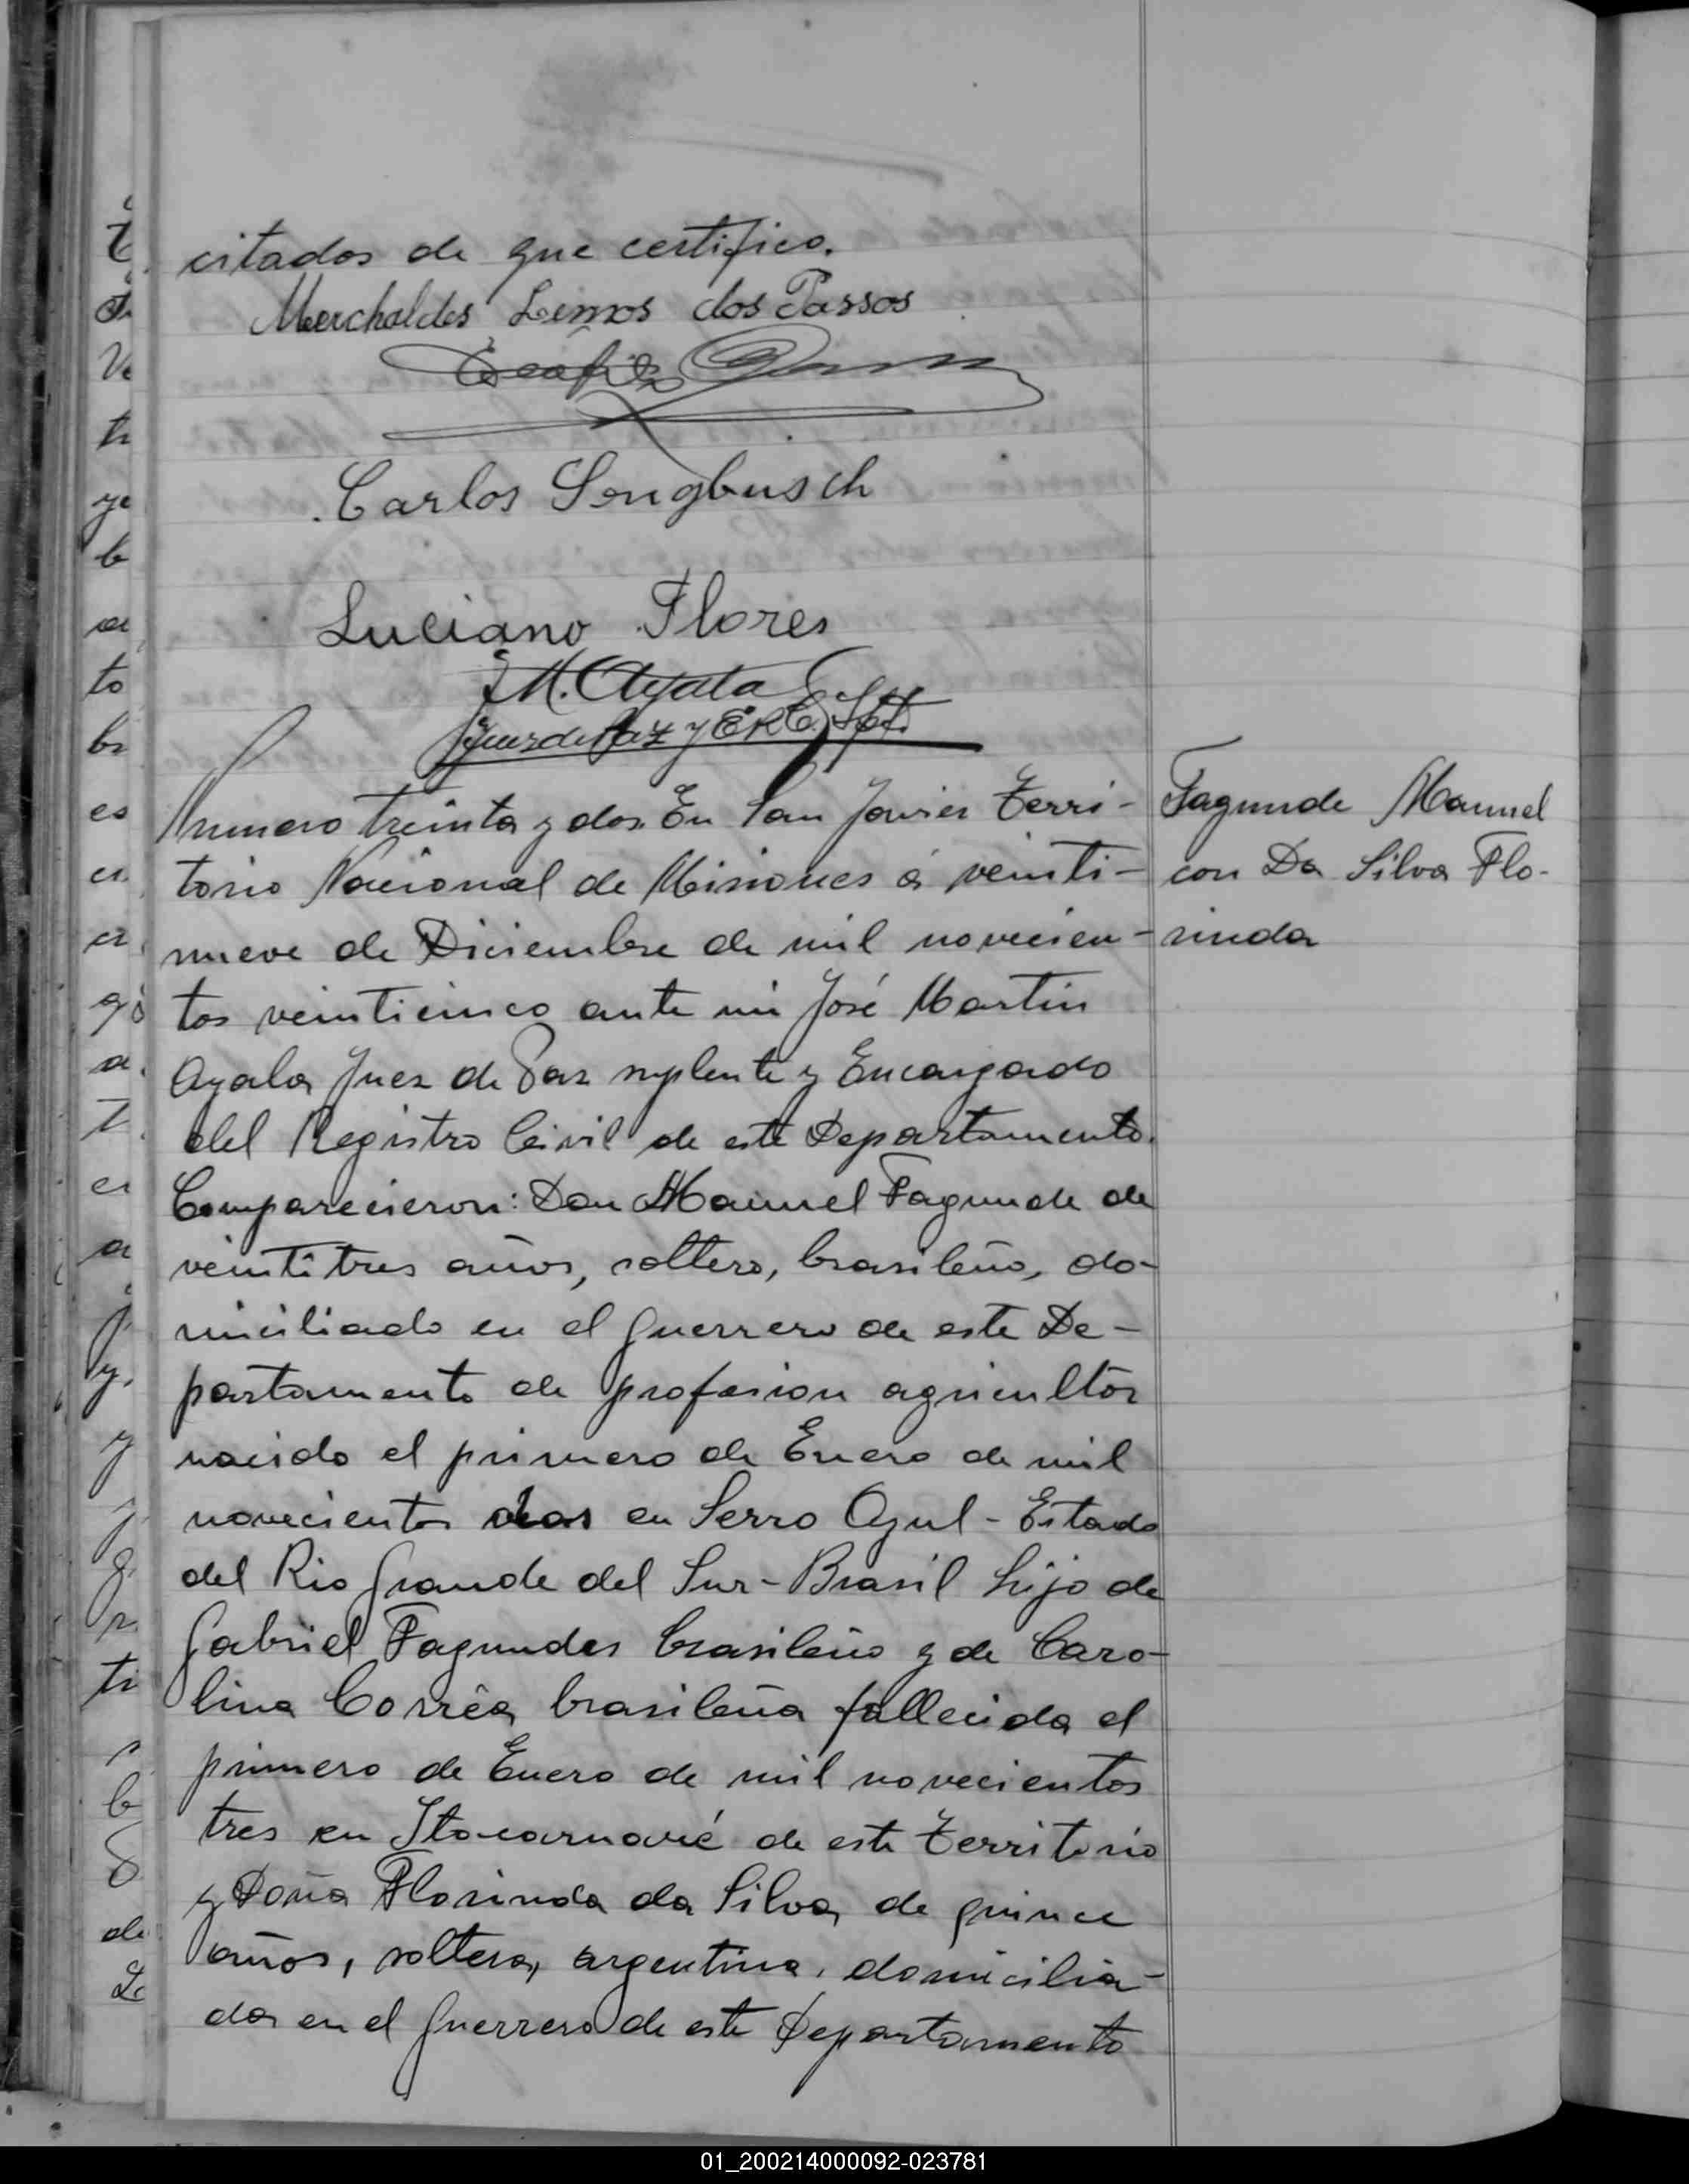 citados de que certifico.
Merchaldes Lemos dos Passos
Carlos Sengbusch
Luciano Flores
J M. Ayala
Juez de Paz y E. R. C. Spt.
Numero treinta y dos. En San Javier Terri-
torio Nacional de Misiones á veinti-
nueve de Diciembre de mil novecien-
tos veinticinco ante mi José Martin
Ayala Juez de Paz suplente y Encargado
del Registro Civil de este Departamento.
Comparecieron: Don Manuel Fagunde de
veintitres años, soltero, brasileño, do-
miciliado en el Guerrero de este De-
partamento de profesion agricultor
nacido el primero de Enero de mil
novecientos dos en Serro Azul - Estado
del Rio Grande del Sur - Brasil hijo de
Gabriel Fagundes brasileño y de Caro-
lina Corrêa brasileña fallecida el
primero de Enero de mil novecientos
tres en Itacaruaré de este Territorio
y Doña Florinda da Silva, de quince
años, soltera, argentina, domicilia-
da en el Guerrero de este Departamento
Fagunde Manuel
con Da Silva Flo-
rinda
01_200214000092-023781